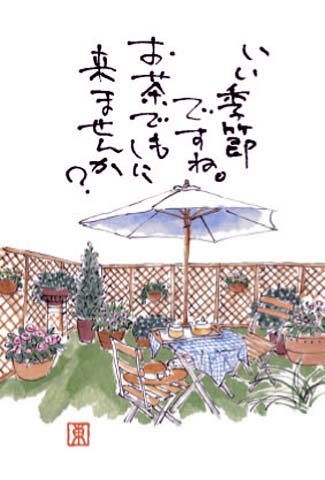 いい季節
ですね。
お茶でもしに
来ませんか?
東